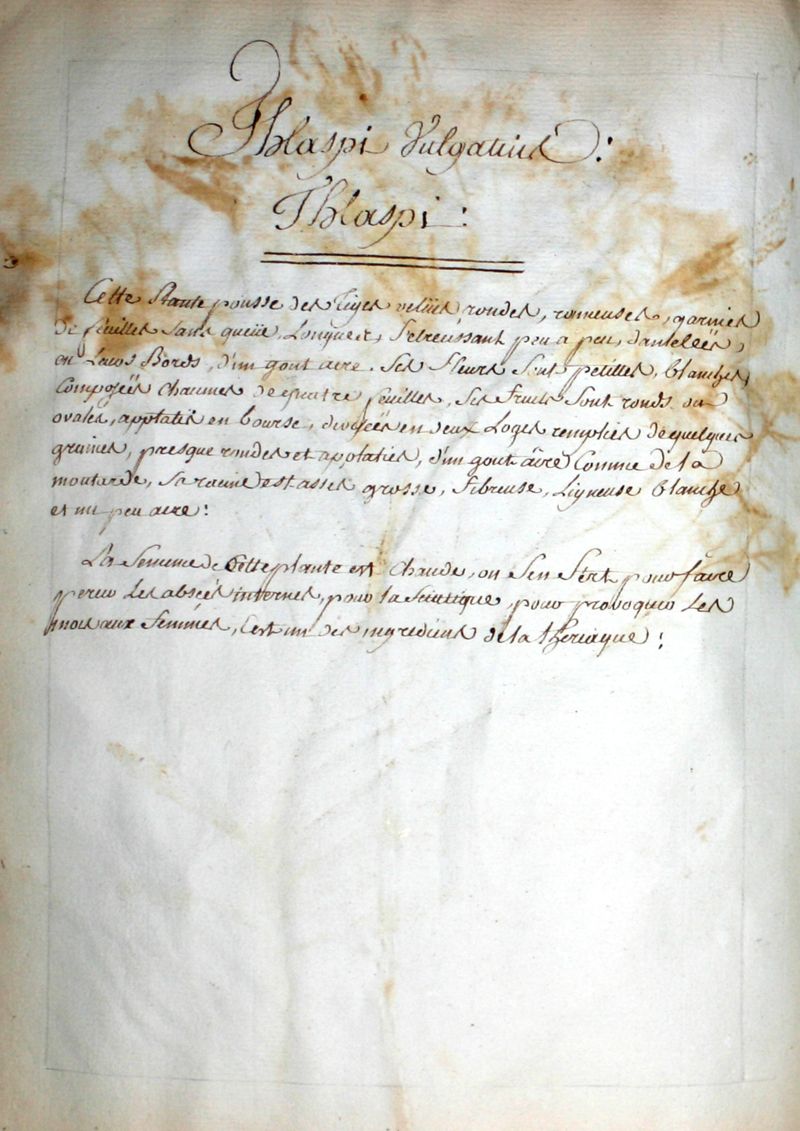 Thlaspi Vulgatius :
Thlaspi :
Cette Plante pousse des Tiges velües rondes, rameuses, garnies
de feüilles sans queüe, Longues, s'etreuissant peu a peu, dantelées,
en Leurs Bords, d'un gout acre. Ses fleurs sont petittes, blanches,
Composées chaunes de quatre feuilles, Ses fruits sont ronds ou
ovales, applatis en bourse, divisées en deux Loges remplies de quelques
graines, presque rondes et applaties, d'un gout âcre Comme de la
moutarde, Sa racine est assés grosse, fibreuse, Ligneuse blanche
et un peu acre :
La Semence de Cette plante est Chaude, on S'en Sert pour faire
percer les absées internes, pour la Sciatique, pour provoquer les
mois aux femmes, C'est un des ingrediens de la theriaque :